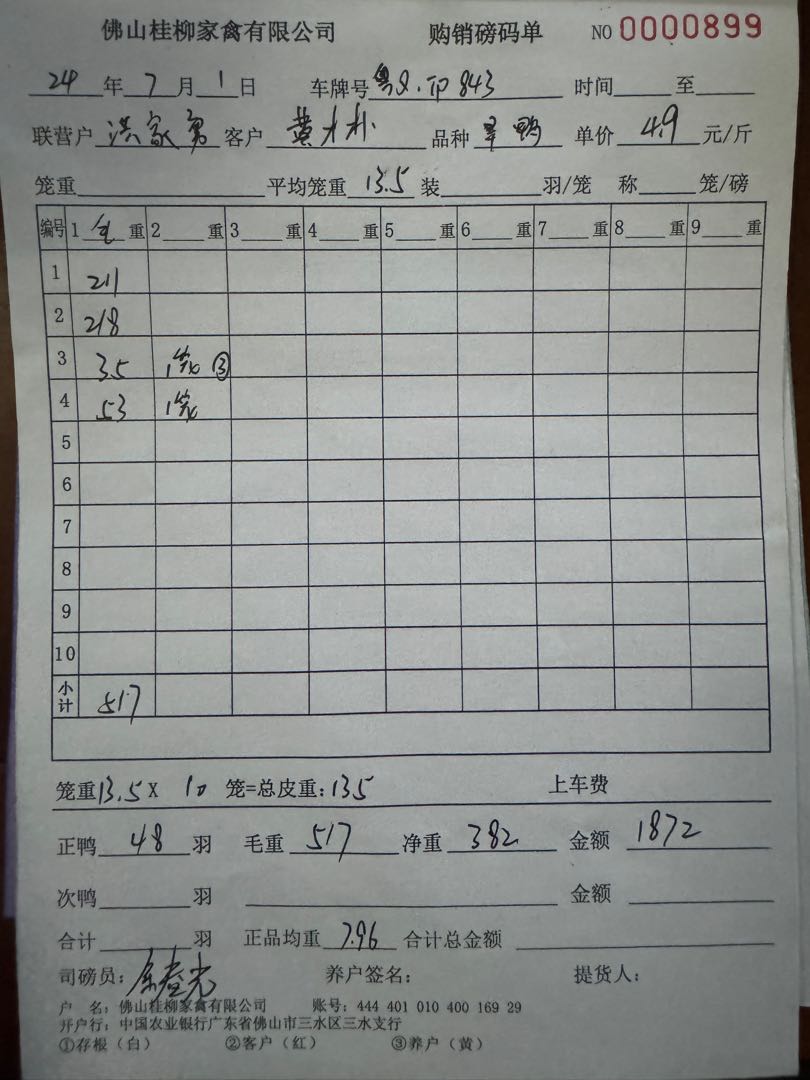 佛山桂柳家禽有限公司 购销磅码单 NO 0000899
24 年 7 月 1 日 车牌号 843 时间 至
联营户 洪家勇 客户 黄 品种 鸭 单价 4.9 元/斤
笼重 平均笼重 13.5 装 羽/笼 称 笼/磅
编号 1 毛 重 2 重 3 重 4 重 5 重 6 重 7 重 8 重 9 重
1 211
2 218
3 35 1笼 ③
4 53 1笼
5
6
7
8
9
10
小计 517
笼重 13.5 X 10 笼=总皮重: 135 上车费
正鸭 48 羽 毛重 517 净重 382 金额 1872
次鸭 羽 金额
合计 羽 正品均重 7.96 合计总金额
司磅员: 养户签名: 提货人:
户 名: 佛山桂柳家禽有限公司 账号: 444 401 010 400 169 29
开户行: 中国农业银行广东省佛山市三水区三水支行
①存根(白) ②客户(红) ③养户(黄)